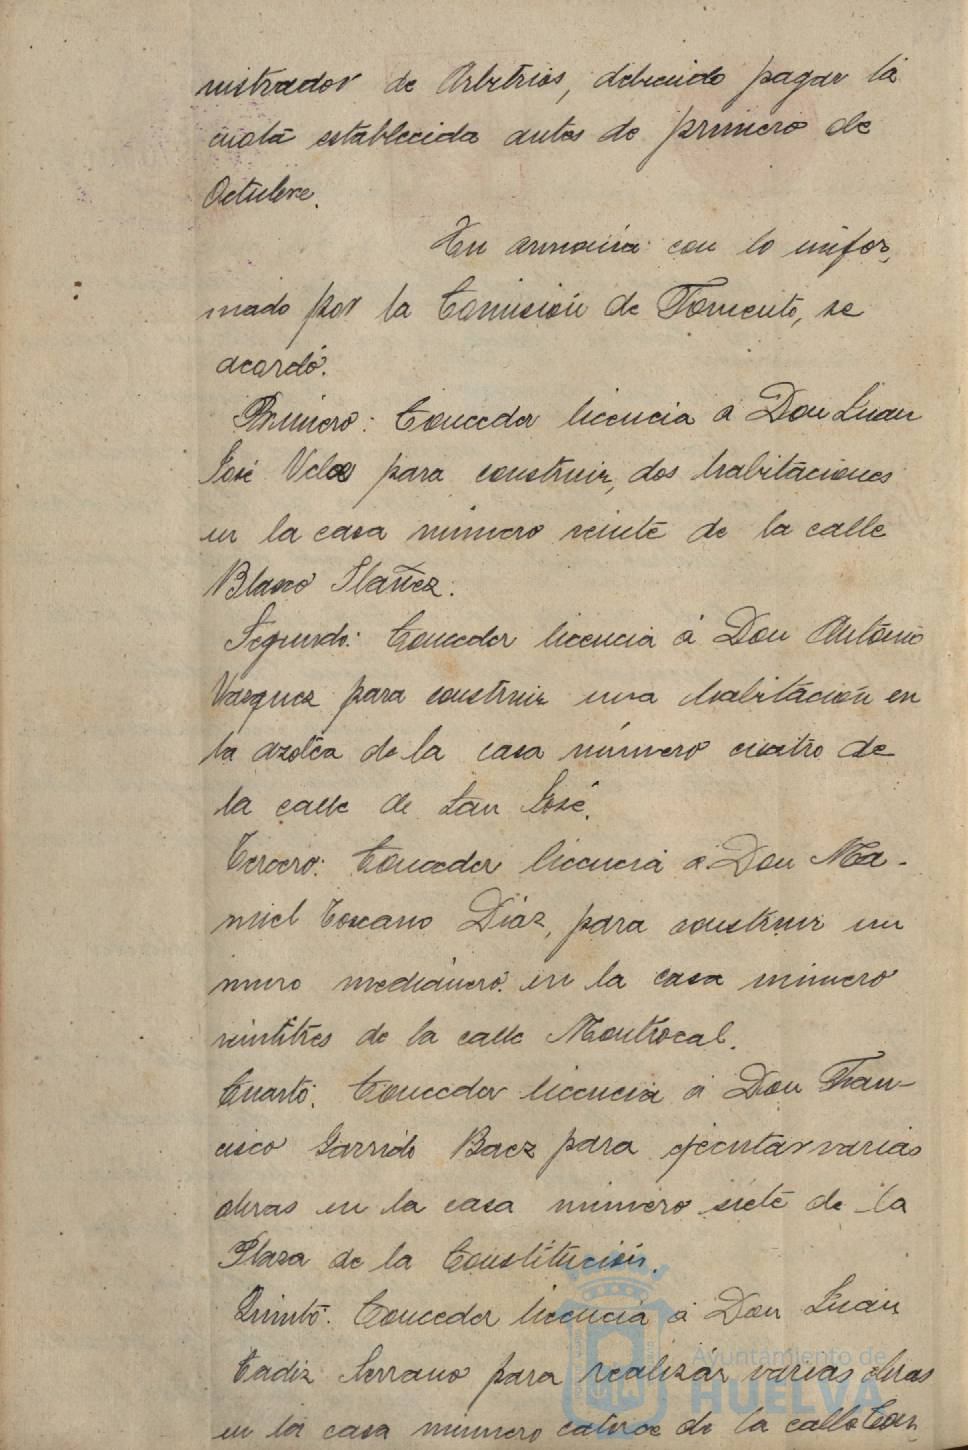 nistrador de Arbitrios, debiendo pagar la
cuota establecida antes de primero de
Octubre.
En armonia con lo infor,
mado por la Comisión de Fomento, se
acordó.
Primero: Conceder licencia á Don Juan
José Velo para construir, dos habitaciones
en la casa número veinte de la calle
Blasco Ibañez.
Segundo: Conceder licencia á Don Antonio
Vazquez para construir una habitación en
la azotea de la casa número cuatro de
la calle de San José.
Tercero: Conceder licencia á Don Ma-
nuel Toscano Diaz, para construir un
muro medianero en la casa número
veintitres de la calle Montrocal.
Cuarto: Conceder licencia á Don Fran-
cisco Garrido Baez para ejecutar varias
obras en la casa número siete de la
Plaza de la Constitución.
Quinto: Conceder licencia á Don Juan
Cadiz Serrano para realizar varias obras
en la casa número catorce de la calle Con,
Ayuntamiento de
HUELVA